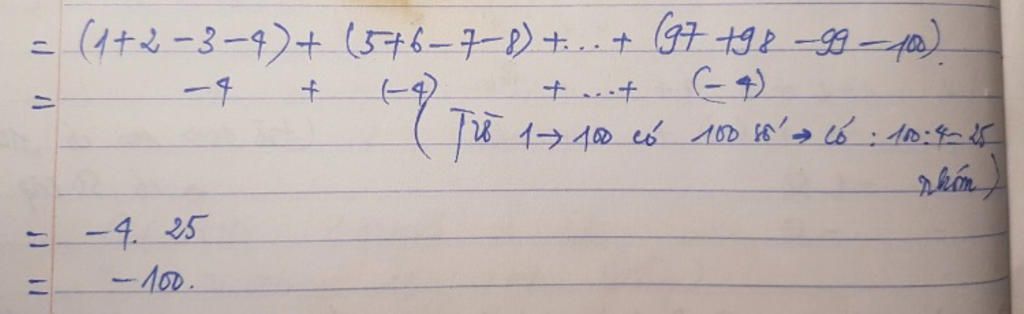 = (1+2-3-4) + (5+6-7-8) + ... + (97+98-99-100).
= -4 + (-4) + ... + (-4)
( Từ 1 → 100 có 100 số → có : 100:4=25
nhóm)
= -4. 25
= -100.